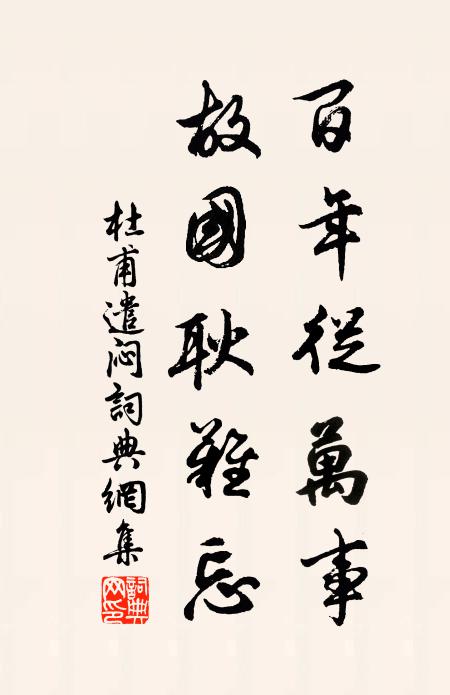 百年從萬事
故國耿難忘
杜甫遣闷詞典網集
詞典網印